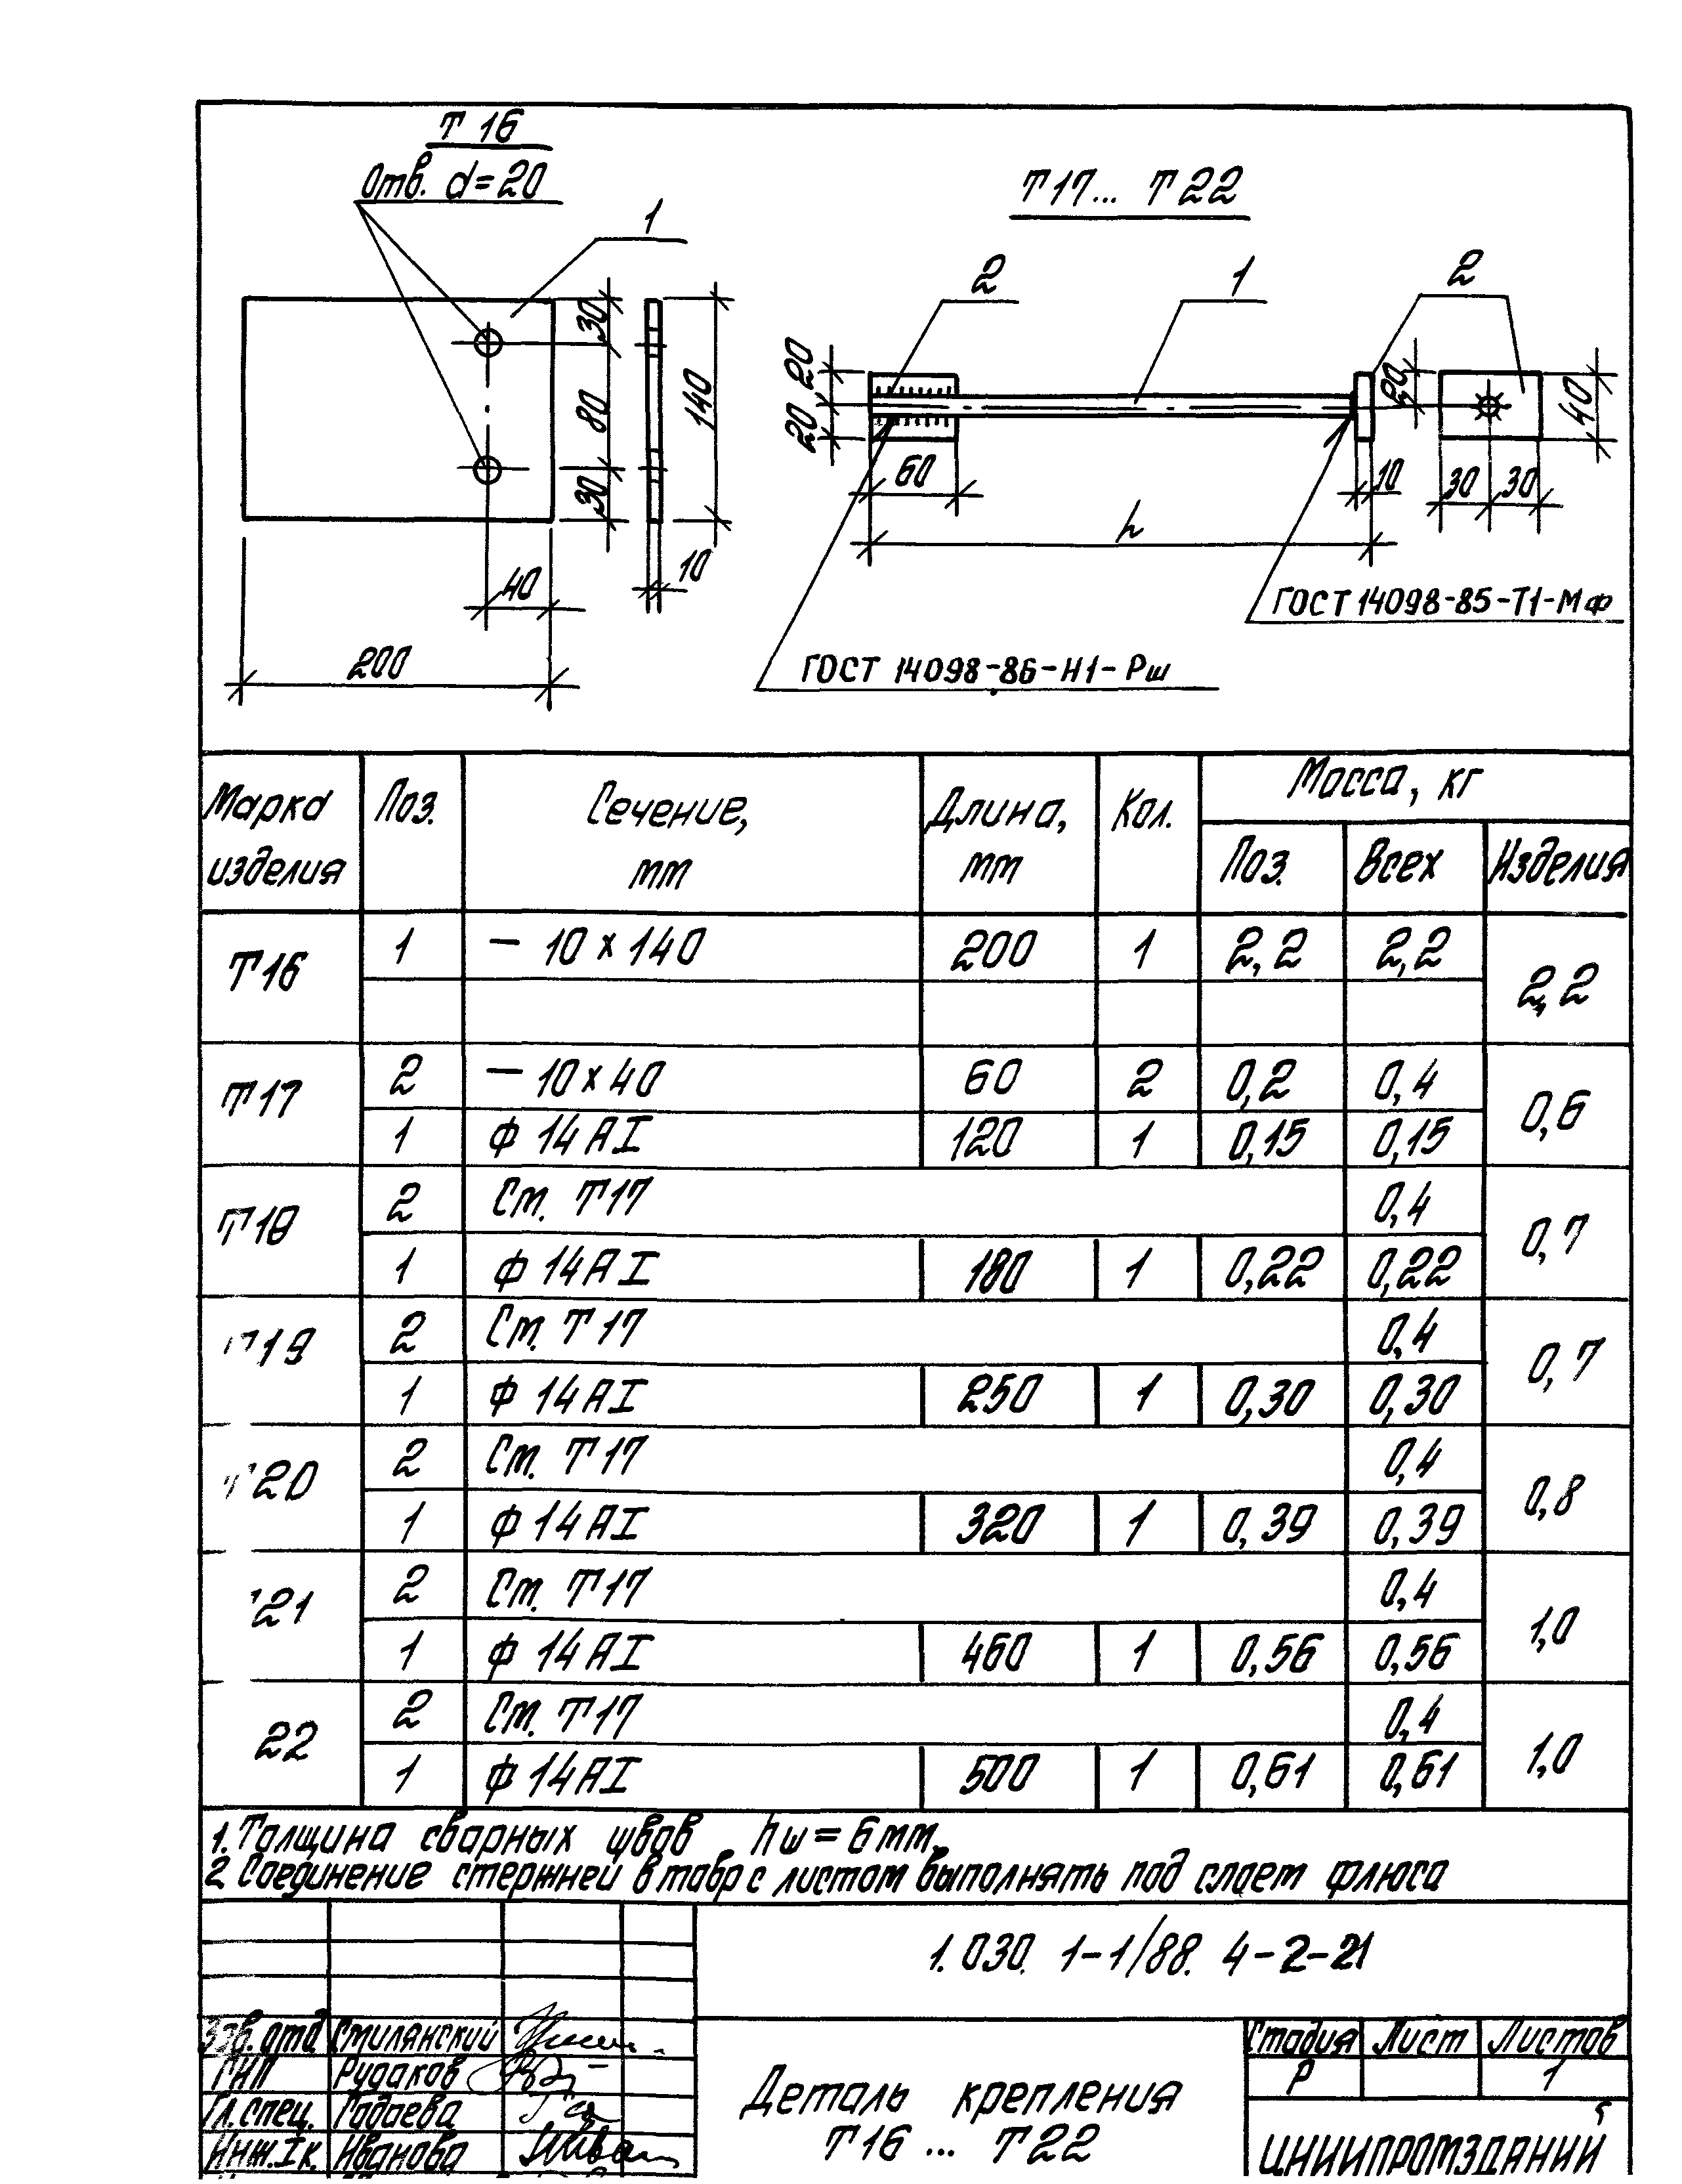 Т 16
Отв. d=20
1
30
80
30
140
10
40
200
Т17... Т22
2
1
2
20
20
60
h
10
20
40
30
30
ГОСТ 14098-85-Т1-Мф
ГОСТ 14098-86-Н1-Рш
Марка изделия Поз. Сечение, мм Длина, мм Кол. Масса, кг
Поз. Всех Изделия
Т16 1 — 10 х 140 200 1 2,2 2,2 2,2
Т17 2 — 10 х 40 60 2 0,2 0,4 0,6
1 Ф 14 АI 120 1 0,15 0,15
Т18 2 См. Т17 0,4 0,7
1 Ф 14 АI 180 1 0,22 0,22
Т19 2 См. Т17 0,4 0,7
1 Ф 14 АI 250 1 0,30 0,30
Т20 2 См. Т17 0,4 0,8
1 Ф 14 АI 320 1 0,39 0,39
Т21 2 См. Т17 0,4 1,0
1 Ф 14 АI 460 1 0,56 0,56
22 2 См. Т17 0,4 1,0
1 Ф 14 АI 500 1 0,61 0,61
1. Толщина сварных швов hш = 6 мм.
2 Соединение стержней в тавр с листом выполнять под слоем флюса
1.030. 1-1/88. 4-2-21
Зав. отд Смилянский
ГИП Рудаков
Гл. спец. Гадаева
Инж. Iк. Иванова
Деталь крепления
Т16 ... Т22
Стадия Лист Листов
Р 1
ЦНИИПРОМЗДАНИЙ